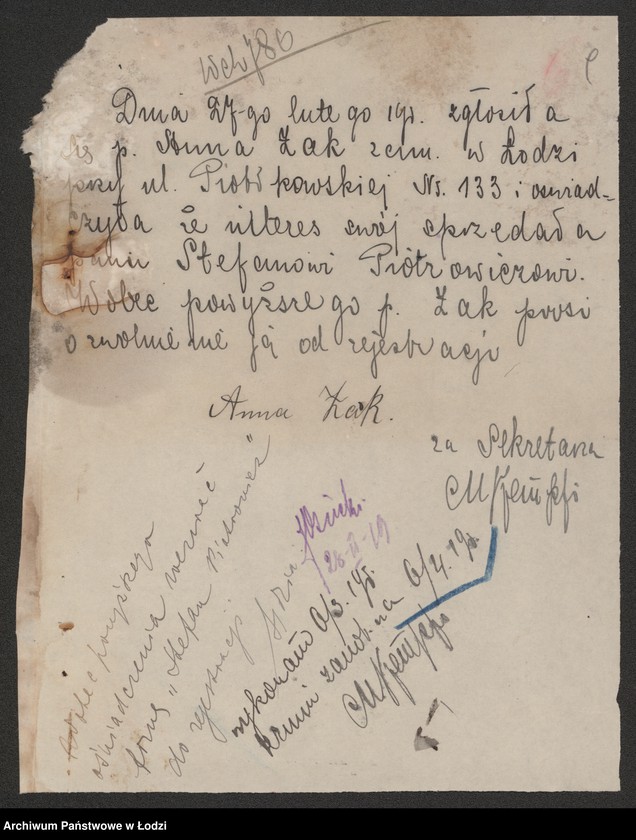 Wch 786
Dnia 27-go lutego 19r. zgłosiła
się p. Anna Żak zam. w Łodzi
przy ul. Piotrkowskiej No. 133 i oświad=
czyła że interes swój sprzedała
panu Stefanowi Piotrowiczowi.
Wobec powyższego p. Żak prosi
o zwolnienie ją od rejestracji
Anna Żak.
za Sekretarza
Wobec powyższego
oświadczenia wezwać
firmę „Stefan Piotrowicz"
do rejestracji
28-II-19
wykonano 6/3. 19r.
termin zawit. na 6/4. 19r.
Archiwum Państwowe w Łodzi